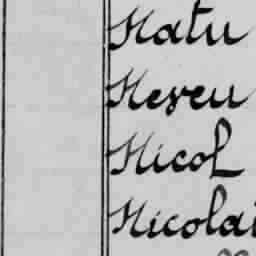 Natu
Neveu
Nicol
Nicolai